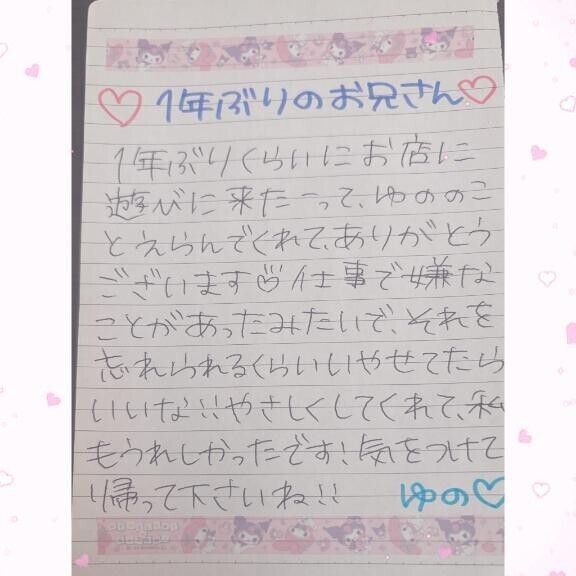 ♡1年ぶりのお兄さん♡
1年ぶりくらいにお店に
遊びに来たーって、ゆののこ
とえらんでくれて、ありがとう
ございます♡仕事で嫌な
ことがあったみたいで、それを
忘れられるくらいいやせてたら
いいな!!やさしくしてくれて、私
もうれしかったです!気をつけて
帰って下さいね!!
ゆの♡